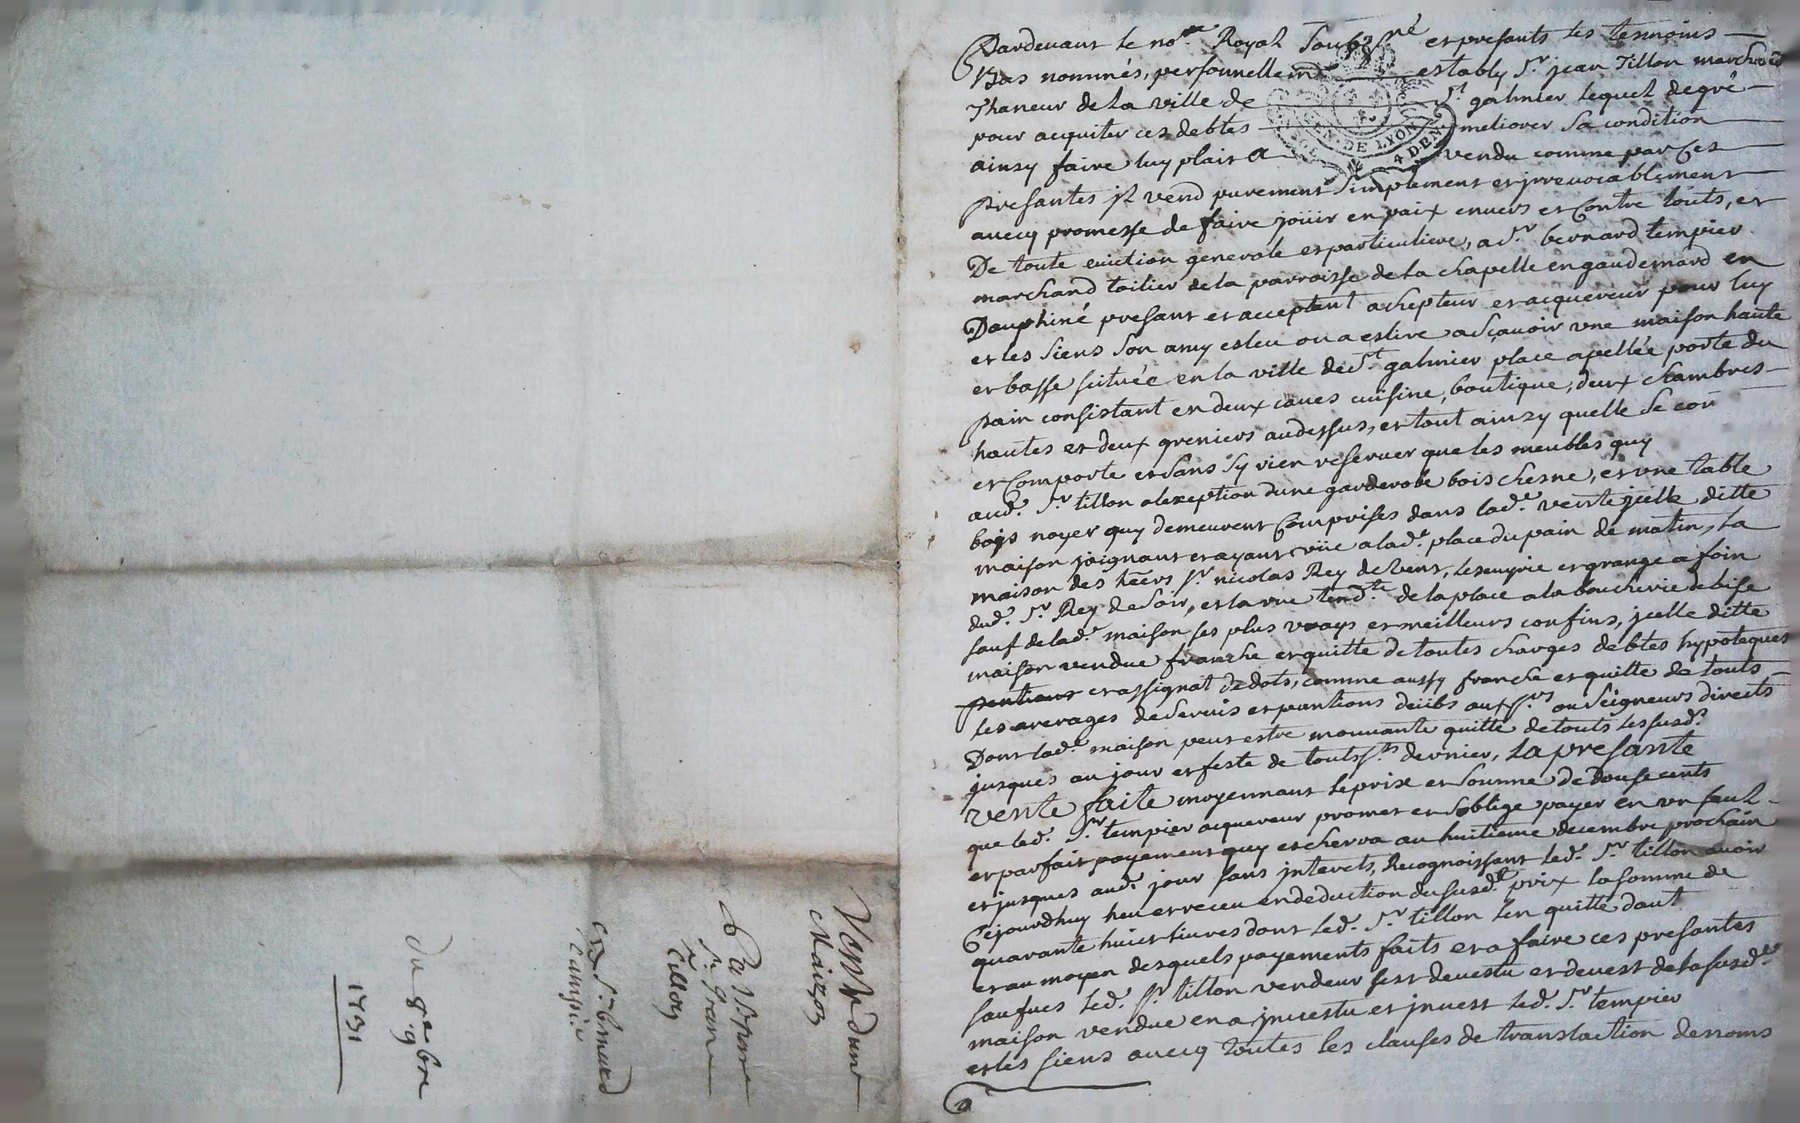 Pardevant le no.re Royal soubs.né et presants les tesmoins
Bas nommés, personnellemt estably sr. jean Tillon marchand
Thaneur de la ville de st. galmier lequel de gré
pour acquiter ces debtes meliorer sa condition
ainsy faire luy plait a vendu comme par ces
presantes jl vend purement simplement et jrrevocablement
avecq promesse de faire joüir en paix envers et contre touts, et
De toute eviction generale et particuliere, a sr. bernard tempier
marchand tailier de la parroisse de la chapelle en gaudemard en
Dauphiné presant et acceptent achepteur et acquereur pour luy
et les siens son amy esleu ou a eslire asçavoir une maison haute
et basse scituée en la ville de st. galmier place apellée porte du
pain consistant en deux caves cuisine, boutique, deux chambres
hautes et deux greniers audessus, et tout ainsy quelle se con
et Comporte et sans sy rien reserver que les meubles quy
aud. sr. tillon alexeption dune garderobe bois chesne, et une table
bois noyer quy demeurent Comprises dans lad.e vente jcelle ditte
maison joignant et ayant vüe a lad.e place du pain de matin, La
maison des héers sr. nicolas Rey de vent, lescuyrie et grange a foin
dud. sr. Rey de soir, et la rue tend.te de la place a la boucherie de bise
sauf de lad.e maison ses plus vrays et meilleurs confins, jcelle ditte
maison vendue franche et quitte de toutes charges debtes hypoteques
pentions et assignat de dots, comme aussy franche et quitte de touts
les arerages de servis et pantions deübs aux srs ou seigneurs directs
Dont lad.e maison peut estre mouvante quitte de touts les susd.s
jusques au jour et feste de toutss.ts dernier, La presante
vente faite moyennant le prix et somme de douse cents
que led. sr. tempier acquereur promet et soblige payer en un seul
et parfait payement quy escherra au huitieme decembre prochain
et jusques aud. jour sans jnterets, Recognoissant led. sr. tillon avoir
Cejourdhuy heu et receu en deduction du susd.t prix la somme de
quarante huict livres dont led. sr. tillon len quitte dont
et au moyen desquels payements faits et a faire ces presantes
saufues led. sr. tillon vendeur sest devestu et devest de la susd.e
maison vendue en a jnvestu et jnvest led. sr. tempier
et les siens avecq toutes les clauses de translaction de noms
GEN. DE LYON
4 DEN.
Vente dune
Maizon
Par
sr. jean
Tillon
a sr. bernard
Tampie
du 8e 9bre
1731